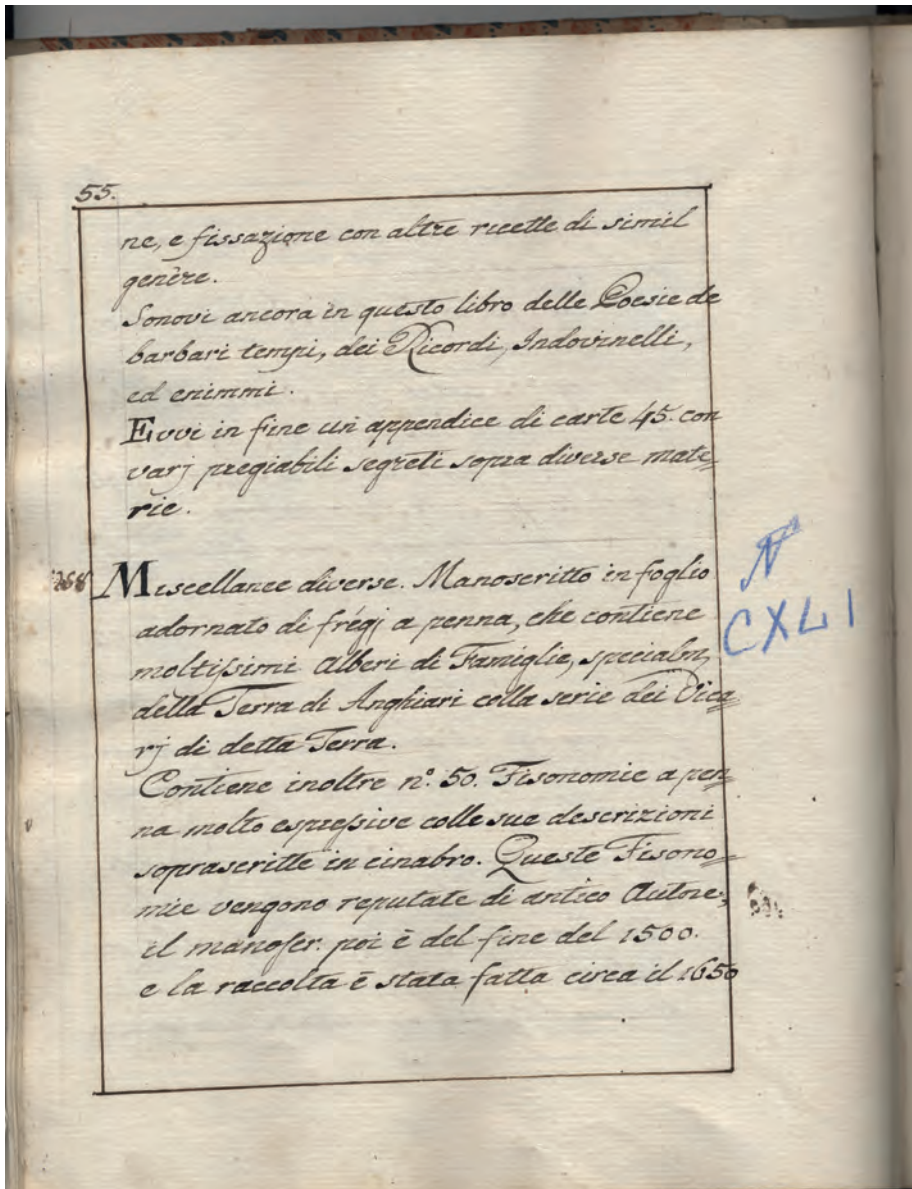 55.
ne, e fissazione con altre ricette di simil
genere.
Sonovi ancora in questo libro delle Poesie de
barbari tempi, dei Ricordi, Indovinelli,
ed enimmi.
Evvi in fine un appendice di carte 45. con
varj pregiabili segreti sopra diverse mate=
rie.
Miscellanee diverse. Manoscritto in foglio
adornato di fregj a penna, che contiene
moltissimi Alberi di Famiglie, specialm,
della Terra di Anghiari colla serie dei Vica=
rj di detta Terra.
N
CXLI
Contiene inoltre n.º 50. Fisonomie a pen=
na molto espressive colle sue descrizioni
soprascritte in cinabro. Queste Fisono=
mie vengono reputate di antico Autore,
il manoscr. poi è del fine del 1500.
e la raccolta è stata fatta circa il 1650